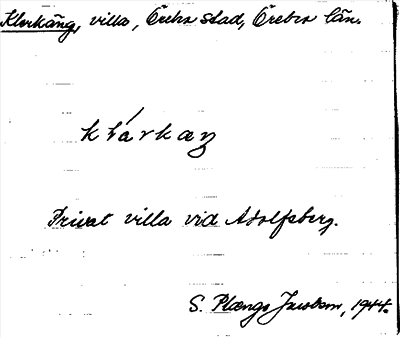 Klerkäng, villa, Örebro stad, Örebro län.
klárkaŋ
Privat villa vid Adolfsberg.
S. Plænge Jacobson, 1944.